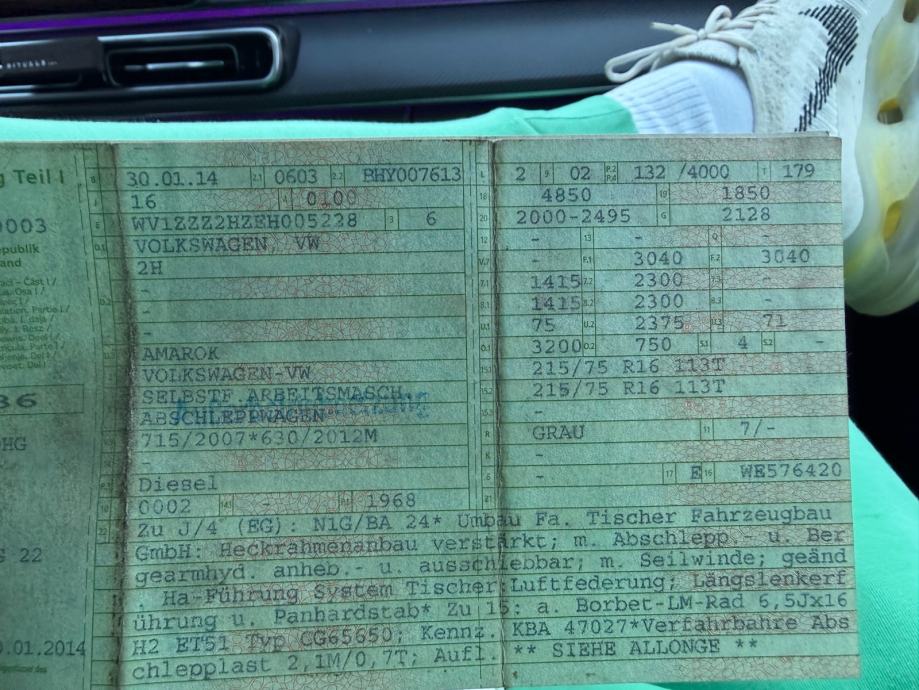 RITUALS
g Teil I
0003
epublik
land
36
OHG
S 22
0.01.2014
30.01.14 2.1 0603 2.2 BHY007613
16 4 0100
WV1ZZZ2HZEH005228 3 6
VOLKSWAGEN, VW
2H
-
-
-
-
AMAROK
VOLKSWAGEN-VW
SELBSTF.ARBEITSMASCH.
ABSCHLEPPWAGEN
715/2007*630/2012M
-
Diesel
0002 - 1968
L 2 9 02 P.2 P.4 132 /4000 T 179
18 4850 19 1850
20 2000-2495 G 2128
12 - 13 - Q -
V.7 - F.1 3040 F.2 3040
7.1 1415 7.2 2300 7.3 -
8.1 1415 8.2 2300 8.3 -
U.1 75 U.2 2375 U.3 71
O.1 3200 O.2 750 S.1 4 S.2 -
15.1 215/75 R16 113T
15.2 215/75 R16 113T
15.3 -
R GRAU 11 7/-
K -
6 - 17 E 16 WE576420
21 -
22 Zu J/4 (EG): N1G/BA 24* Umbau Fa. Tischer Fahrzeugbau
GmbH: Heckrahmenanbau verstärkt; m. Abschlepp - u. Ber
gearmhyd. anheb.- u. ausschiebbar; m. Seilwinde; geänd
. Ha-Führung System Tischer;Luftfederung; Längslenkerf
ührung u. Panhardstab* Zu 15: a. Borbet-LM-Rad 6,5Jx16
H2 ET51 Typ CG65650; Kennz. KBA 47027*Verfahrbahre Abs
chlepplast 2,1M/0,7T; Aufl. ** SIEHE ALLONGE **